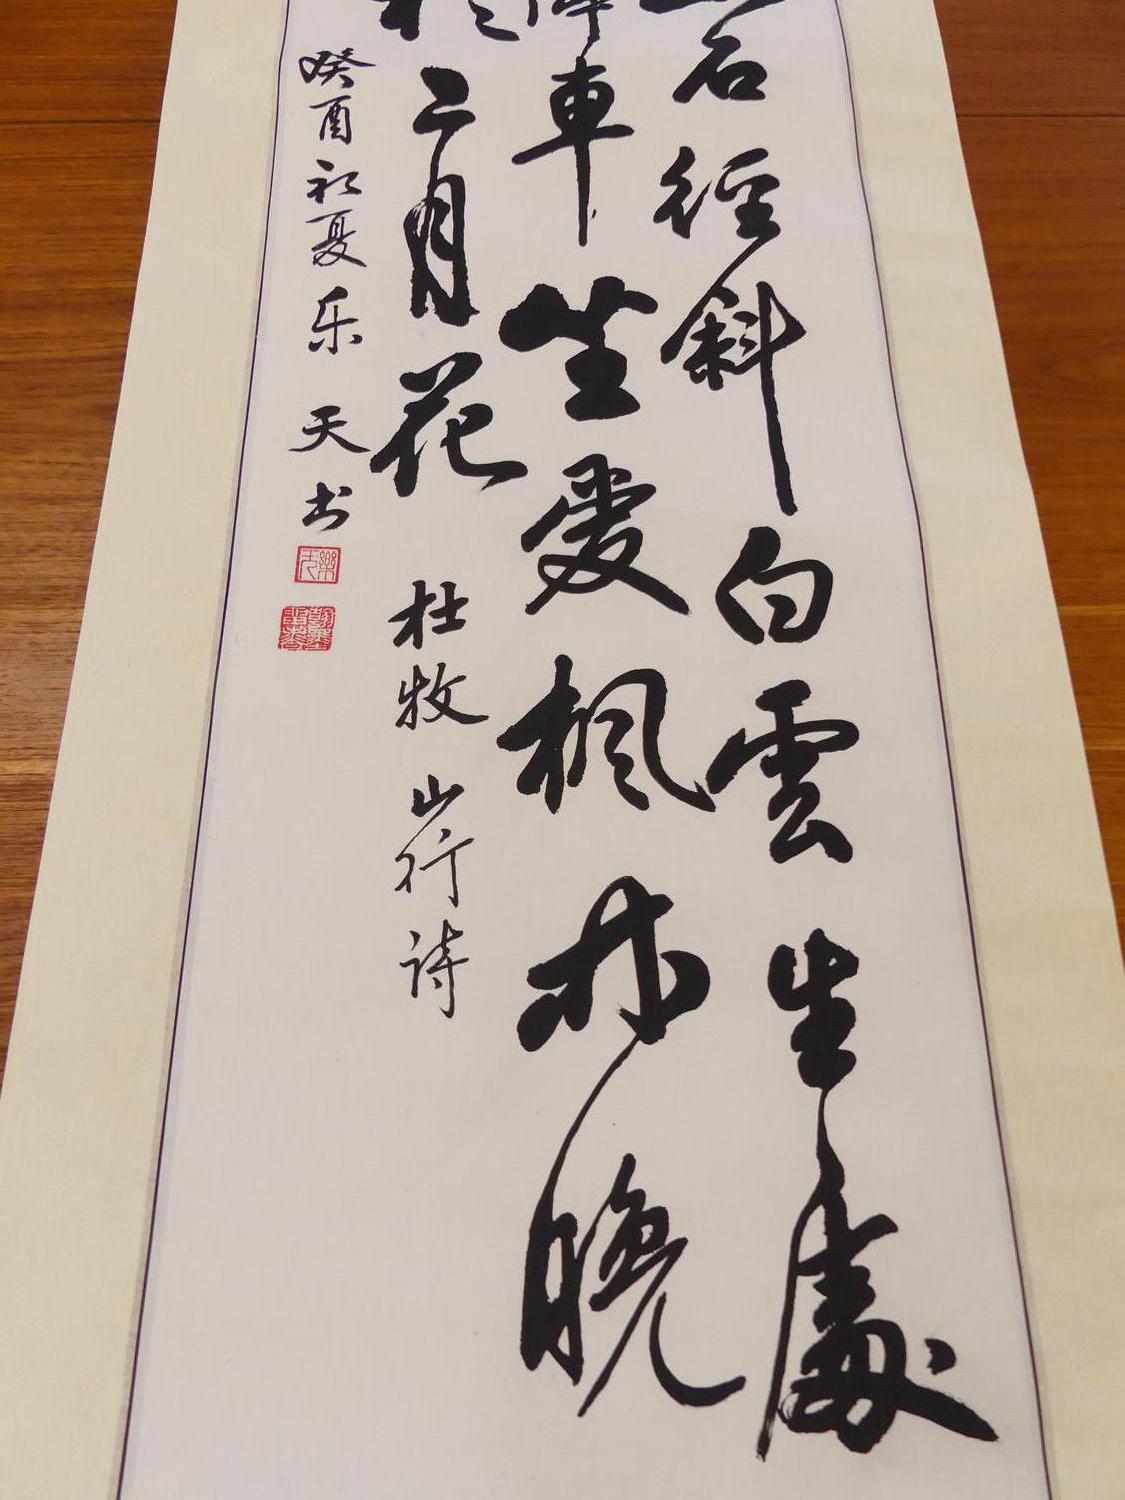 山石徑斜白雲生處
停車坐愛楓林晚
於二月花 杜牧 山行诗
癸酉初夏 乐天书